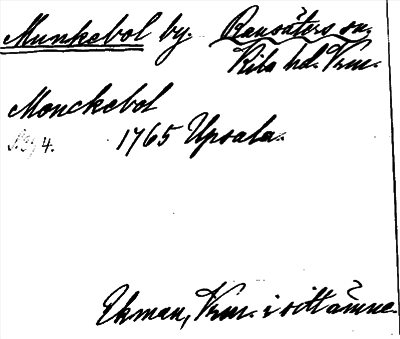 Munkebol by. Ransäters sn.
Kils hd. Vrm.
Monckebol
4. 1765 Upsala.
Ekman, Vrm. i sitt ämne.